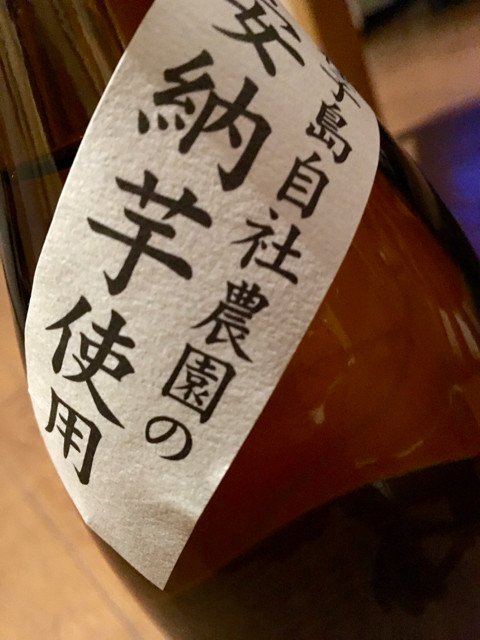 子島自社農園の
安納芋使用